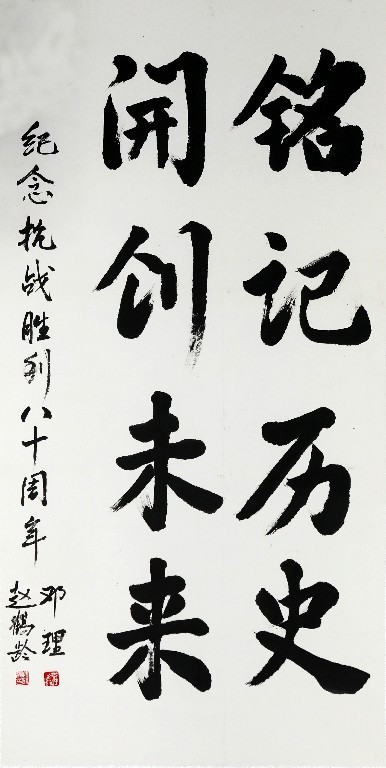 铭记历史
开创未来
纪念抗战胜利八十周年
邓理
赵鹤龄